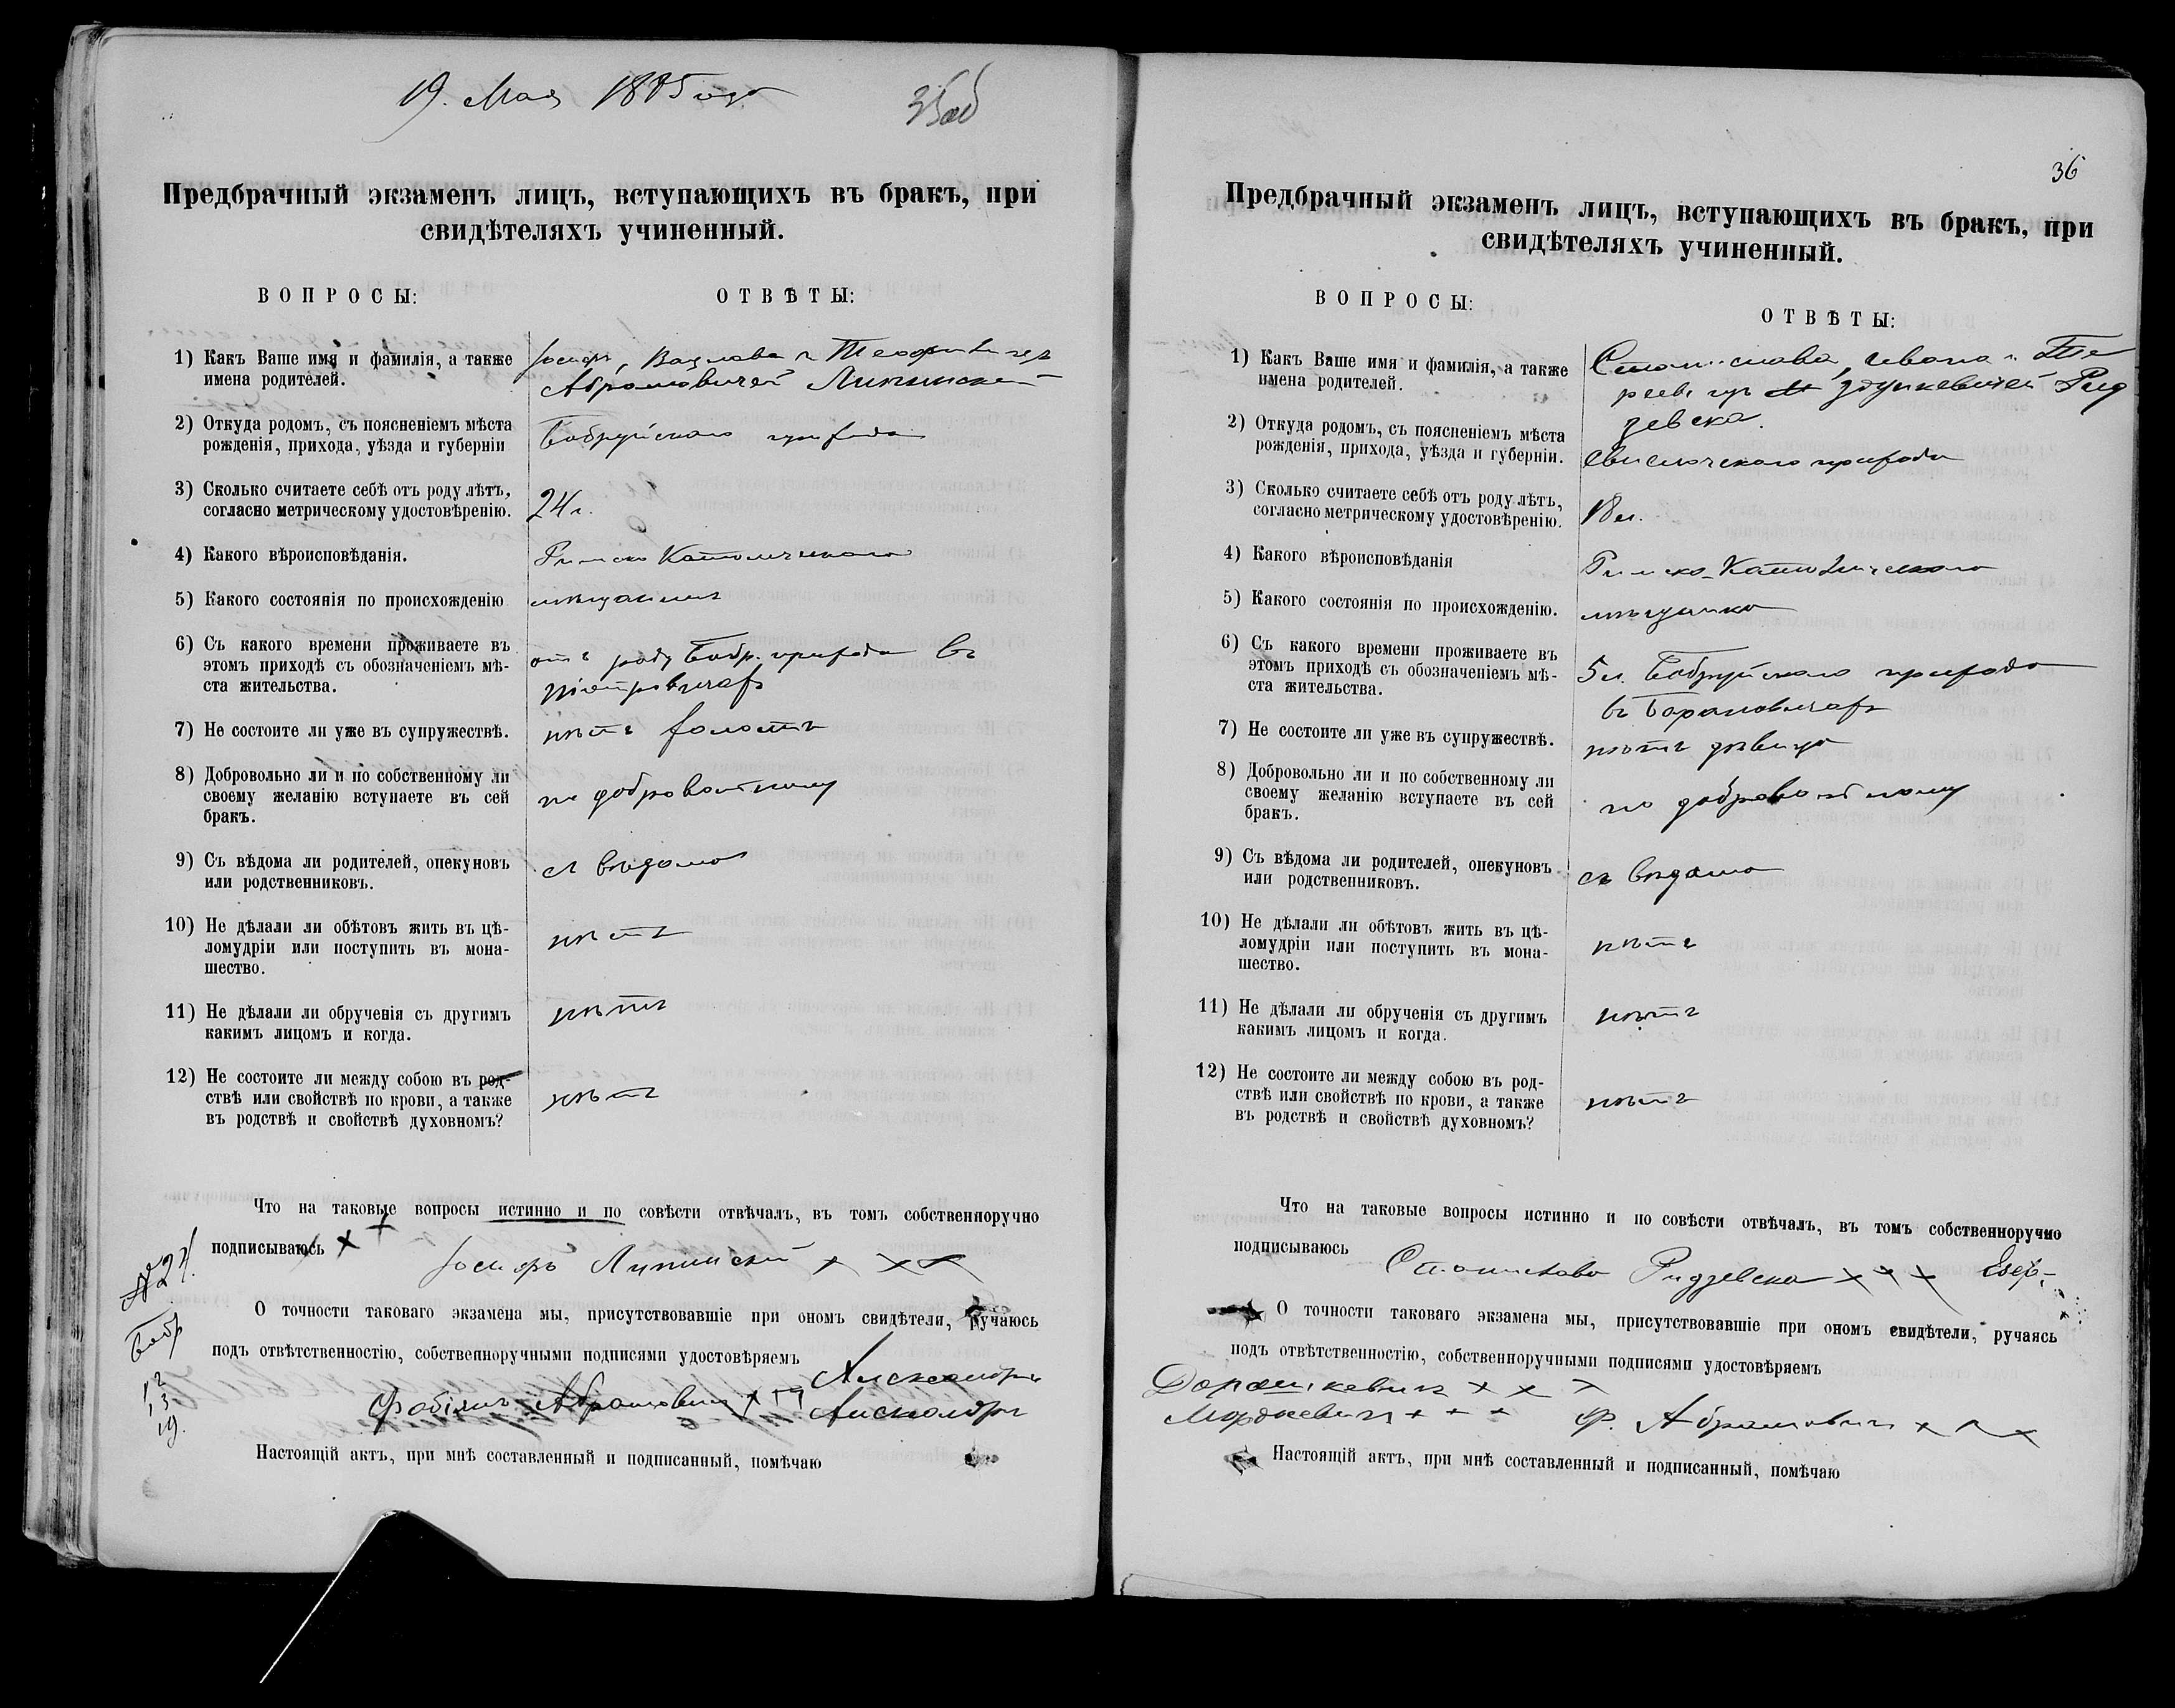 19. Мая 1885 года
35об
Предбрачный экзаменъ лицъ, вступающихъ въ бракъ, при
свидѣтеляхъ учиненный.
ВОПРОСЫ:
ОТВѢТЫ:
1) Какъ Ваше имя и фамилія, а также
имена родителей.
Іосифъ, Вацлава и Теофили изъ
Абрамовичей Липинский
2) Откуда родомъ, съ поясненіемъ мѣста
рожденія, прихода, уѣзда и губерніи
Бобруйскаго прихода
3) Сколько считаете себѣ отъ роду лѣтъ,
согласно метрическому удостовѣренію.
24 л.
4) Какого вѣроисповѣданія.
Римско Католическаго
5) Какого состоянія по происхожденію
мѣщанинъ
6) Съ какого времени проживаете въ
этомъ приходѣ съ обозначеніемъ мѣ-
ста жительства.
отъ роду Бобр. прихода въ
7) Не состоите ли уже въ супружествѣ.
нѣтъ холостъ
8) Добровольно ли и по собственному ли
своему желанію вступаете въ сей
бракъ.
по добровольному
9) Съ вѣдома ли родителей, опекуновъ
или родственниковъ.
съ вѣдома
10) Не дѣлали ли обѣтовъ жить въ цѣ-
ломудріи или поступить въ мона-
шество.
нѣтъ
11) Не дѣлали ли обрученія съ другимъ
какимъ лицомъ и когда.
нѣтъ
12) Не состоите ли между собою въ род-
ствѣ или свойствѣ по крови, а также
въ родствѣ и свойствѣ духовномъ?
нѣтъ
Что на таковые вопросы истинно и по совѣсти отвѣчалъ, въ томъ собственноручно
подписываюсь
Іосифъ Липинский х х х
О точности таковаго экзамена мы, присутствовавшіе при ономъ свидѣтели, ручаюсь
подъ отвѣтственностію, собственноручными подписями удостовѣряемъ
Александръ
Фабіянъ Абрамовичъ Александръ
Настоящій актъ, при мнѣ составленный и подписанный, помѣчаю
№ 24.
Бобр
12
13
19.
36
Предбрачный экзаменъ лицъ, вступающихъ въ бракъ, при
свидѣтеляхъ учиненный.
ВОПРОСЫ:
ОТВѢТЫ:
1) Какъ Ваше имя и фамилія, а также
имена родителей.
Станислава, Ивана и Те
Рид
зевска.
2) Откуда родомъ, съ поясненіемъ мѣста
рожденія, прихода, уѣзда и губерніи.
Свислочскаго прихода
3) Сколько считаете себѣ отъ роду лѣтъ,
согласно метрическому удостовѣренію.
18 л.
4) Какого вѣроисповѣданія
Римско-Католическаго
5) Какого состоянія по происхожденію.
мѣщанка
6) Съ какого времени проживаете въ
этомъ приходѣ съ обозначеніемъ мѣ-
ста жительства.
5 л. Бобруйскаго прихода
въ Барановичахъ
7) Не состоите ли уже въ супружествѣ.
нѣтъ дѣвица
8) Добровольно ли и по собственному ли
своему желанію вступаете въ сей
бракъ.
по добровольному
9) Съ вѣдома ли родителей, опекуновъ
или родственниковъ.
съ вѣдома
10) Не дѣлали ли обѣтовъ жить въ цѣ-
ломудріи или поступить въ мона-
шество.
нѣтъ
11) Не дѣлали ли обрученія съ другимъ
какимъ лицомъ и когда.
нѣтъ
12) Не состоите ли между собою въ род-
ствѣ или свойствѣ по крови, а также
въ родствѣ и свойствѣ духовномъ?
нѣтъ
Что на таковые вопросы истинно и по совѣсти отвѣчалъ, въ томъ собственноручно
подписываюсь
Станислава Ридзевска х х х
О точности таковаго экзамена мы, присутствовавшіе при ономъ свидѣтели, ручаясь
подъ отвѣтственностію, собственноручными подписями удостовѣряемъ
Дорошкевичъ х х х
Мордкевичъ + + + Ф. Абрамовичъ х х х
Настоящій актъ, при мнѣ составленный и подписанный, помѣчаю